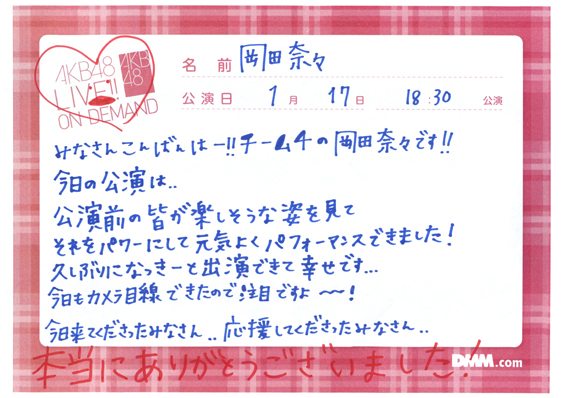 AKB48
LIVE!!
ON DEMAND
AKB
48
名前 岡田奈々
公演日 1月 17日 18:30 公演
みなさんこんばんはー!!チーム4の岡田奈々です!!
今日の公演は..
公演前の皆が楽しそうな姿を見て
それをパワーにして元気よくパフォーマンスできました!
久しぶりになっきーと出演できて幸せです...
今日もカメラ目線できたので注目ですよ〜!
今日来てくださったみなさん..応援してくださったみなさん..
本当にありがとうございました!
DMM.com